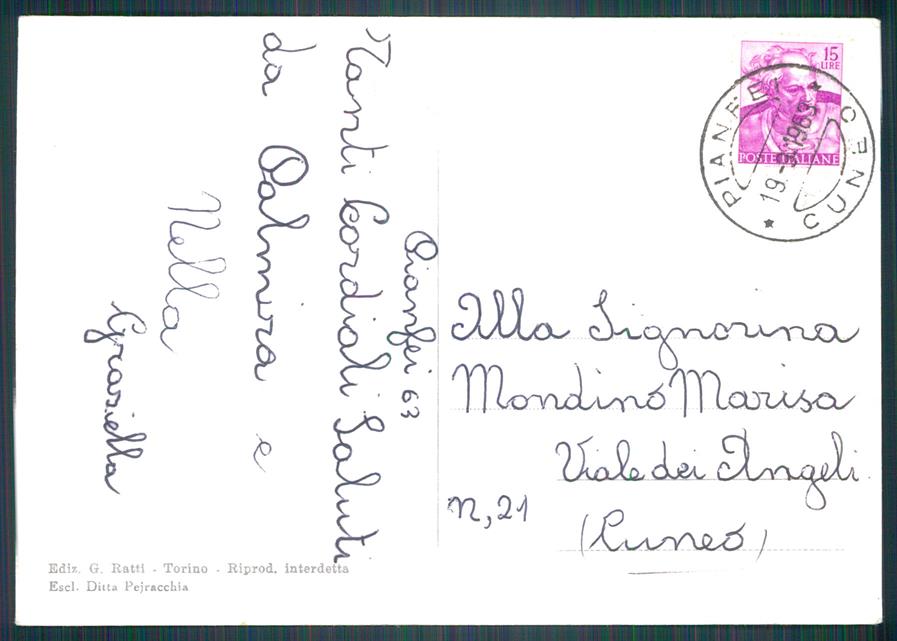 Pianfei 63
Tanti Cordiali Saluti
da Palmira e
Nella
Graziella
15
LIRE
POSTE ITALIANE
PIANFEI
CUNEO
1963
Alla Signorina
Mondino Marisa
Viale dei Angeli
N, 21
(Cuneo)
Ediz. G. Ratti - Torino - Riprod. interdetta
Escl. Ditta Pejracchia